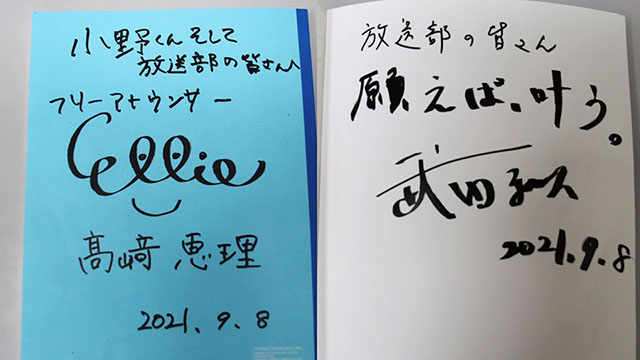 小野くんそして
放送部の皆さんへ
フリーアナウンサー
Cellie
髙﨑 恵理
2021.9.8
放送部の皆さん
願えば、叶う。
武田
2021.9.8